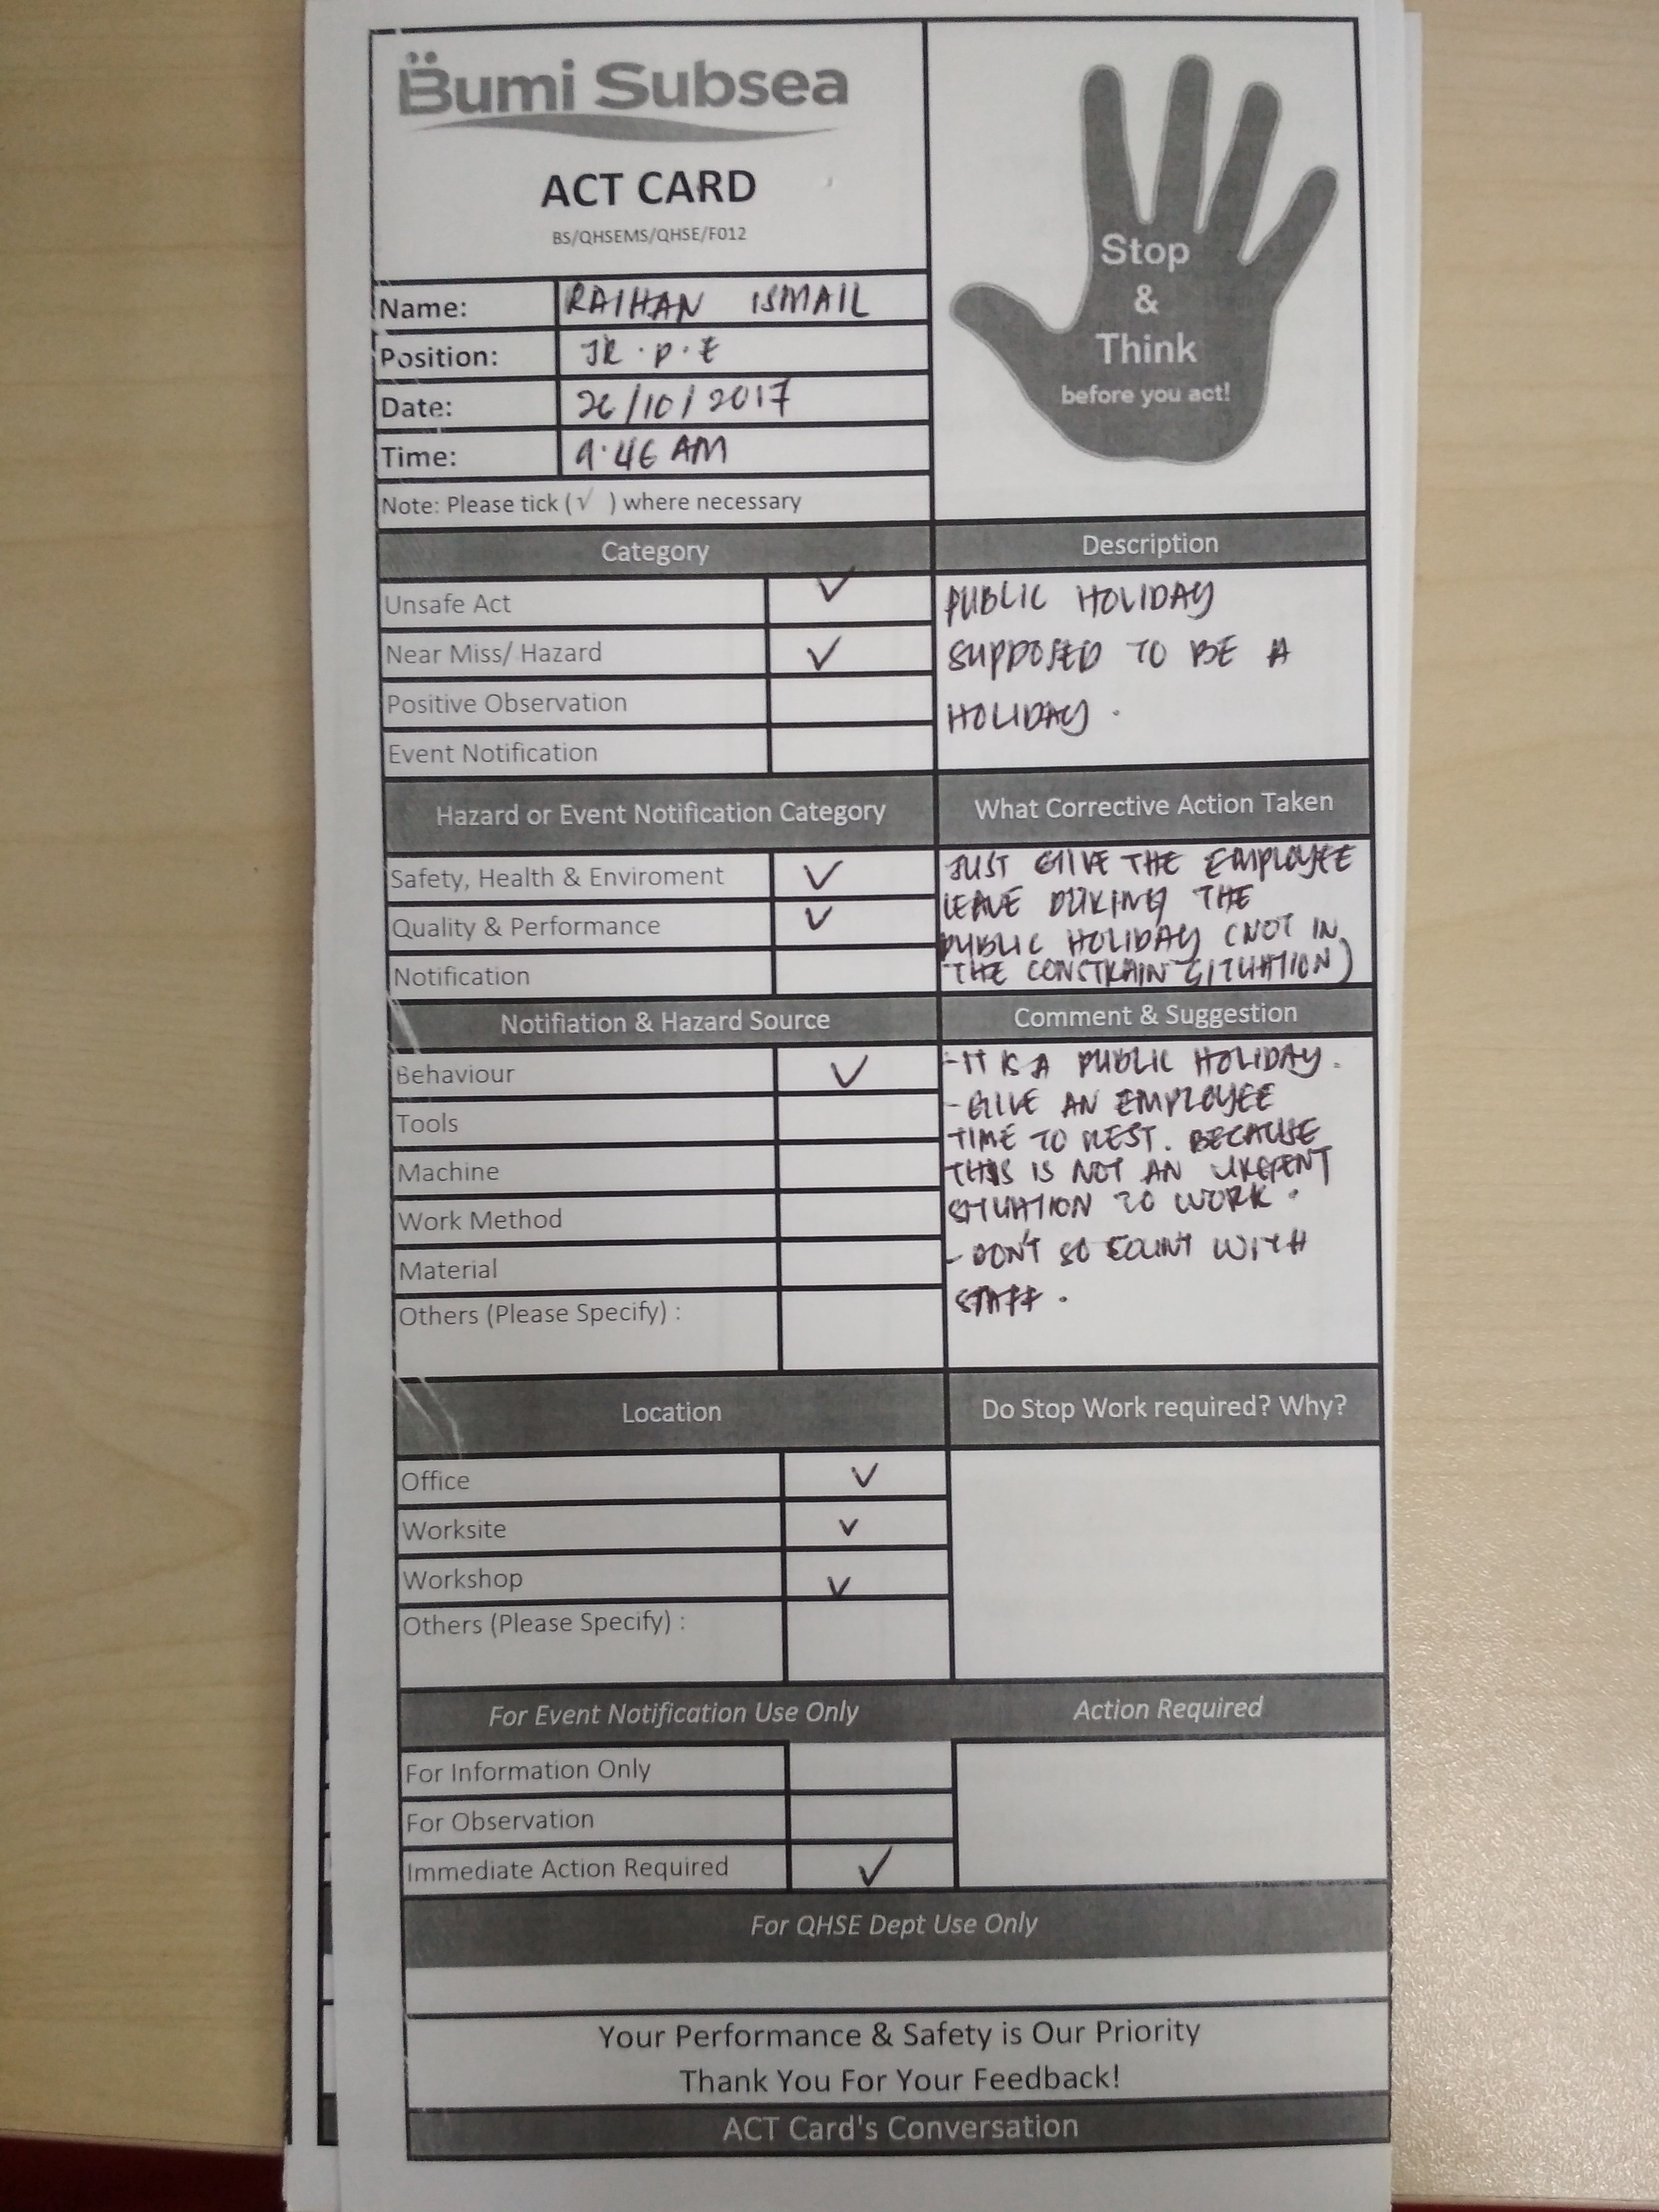 Bumi Subsea
ACT CARD
BS/QHSEMS/QHSE/F012
Stop
&
Think
before you act!
Name: RAIHAN ISMAIL
Position: JR . P . E
Date: 26/10/2017
Time: 9.46 AM
Note: Please tick (√ ) where necessary
Category
Unsafe Act ✓
Near Miss/ Hazard ✓
Positive Observation
Event Notification
Description
PUBLIC HOLIDAY
SUPPOSED TO BE A
HOLIDAY .
Hazard or Event Notification Category
Safety, Health & Enviroment ✓
Quality & Performance ✓
Notification
What Corrective Action Taken
JUST GIVE THE EMPLOYEE
LEAVE DURING THE
PUBLIC HOLIDAY (NOT IN
THE CONSTRAIN SITUATION)
Notifiation & Hazard Source
Behaviour ✓
Tools
Machine
Work Method
Material
Others (Please Specify) :
Comment & Suggestion
- IT IS A PUBLIC HOLIDAY .
- GIVE AN EMPLOYEE
TIME TO REST. BECAUSE
THIS IS NOT AN URGENT
SITUATION TO WORK .
- DON'T SO COUNT WITH
STAFF .
Location
Office ✓
Worksite ✓
Workshop ✓
Others (Please Specify) :
Do Stop Work required? Why?
For Event Notification Use Only
For Information Only
For Observation
Immediate Action Required ✓
Action Required
For QHSE Dept Use Only
Your Performance & Safety is Our Priority
Thank You For Your Feedback!
ACT Card's Conversation